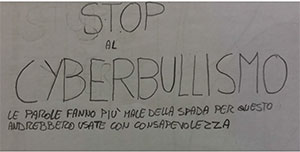 STOP
AL
CYBERBULLISMO
LE PAROLE FANNO PIÙ MALE DELLA SPADA PER QUESTO
ANDREBBERO USATE CON CONSAPEVOLEZZA